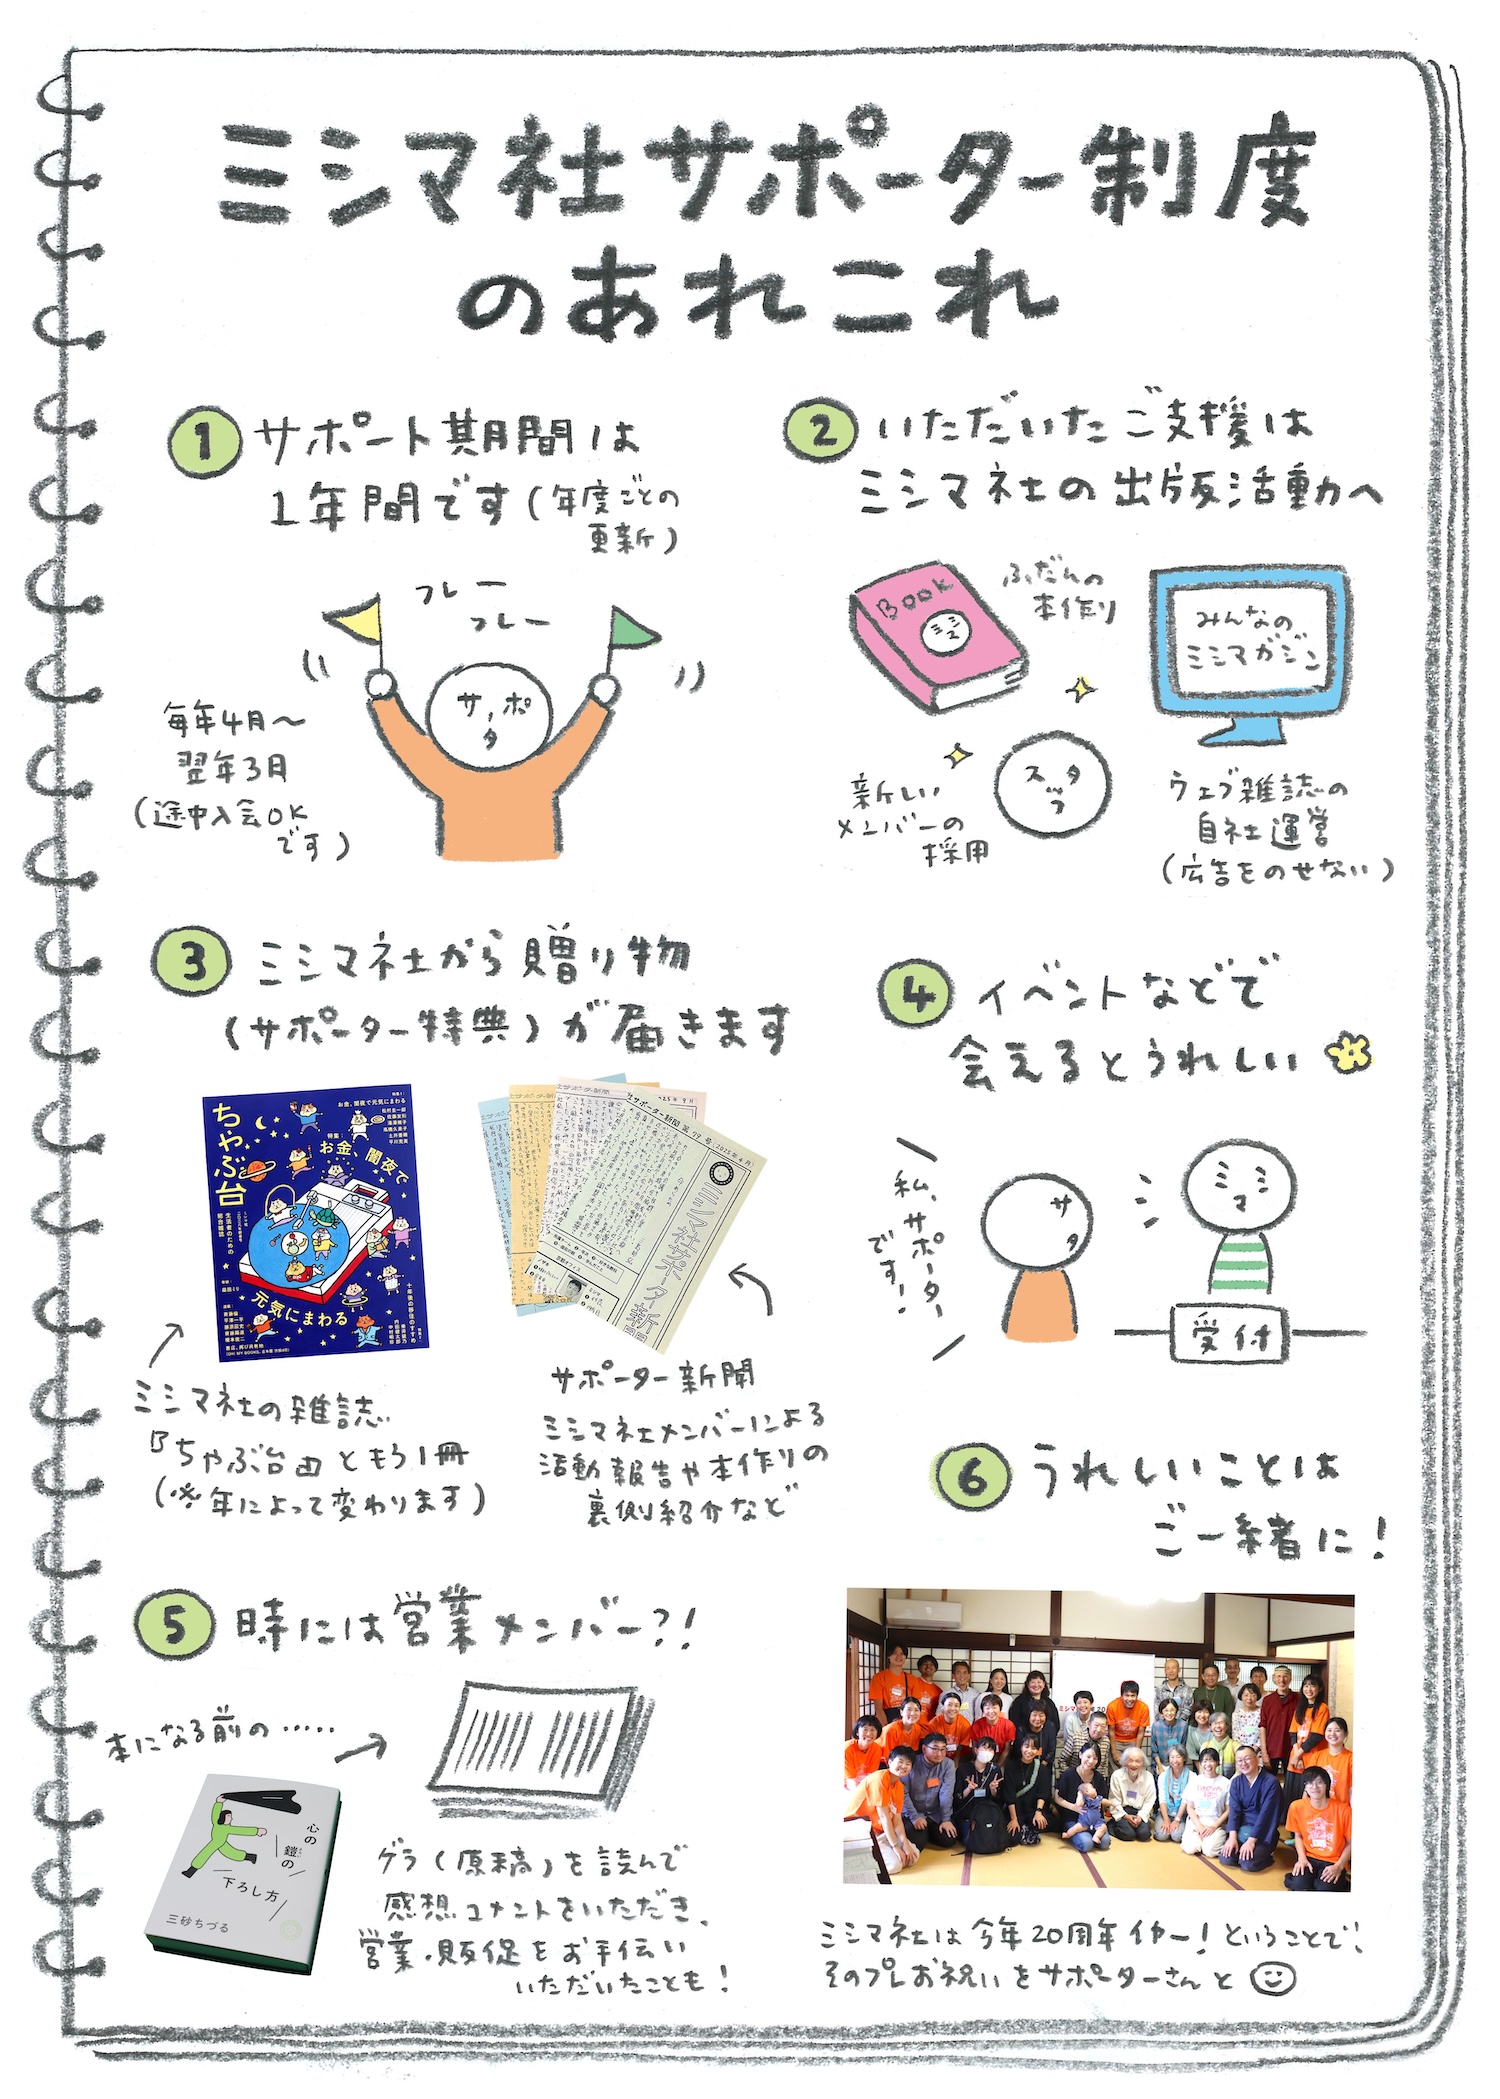 ミシマ社サポーター制度
のあれこれ
1 サポート期間は
1年間です(年度ごとの
更新)
フレー
フレー
サポ
ータ
毎年4月〜
翌年3月
(途中入会OK
です)
2 いただいたご支援は
ミシマ社の出版活動へ
BOOK
ミシマ
ふだんの
本作り
みんなの
ミシマガジン
新しい
メンバーの
採用
スタ
ッフ
ウェブ雑誌の
自社運営
(広告をのせない)
3 ミシマ社から贈り物
(サポーター特典)が届きます
ちゃぶ台
生活者のための
総合雑誌
特集1
お金、闇夜で元気にまわる
特集:
お金、闇夜で
元気にまわる
益田ミリ
サポーター新聞
2025年9月
社サポーター新聞 第79号(2025年4月)
ミシマ社サポーター新聞
ミシマ社の雑誌
『ちゃぶ台』ともう1冊
(※年によって変わります)
サポーター新聞
ミシマ社メンバーによる
活動報告や本作りの
裏側紹介など
4 イベントなどで
会えるとうれしい
私、サポーター
です!
サ
タ
ミシ
マ
受付
5 時には営業メンバー?!
本になる前の……
心の
鎧の
よろい
下ろし方
三砂ちづる
ゲラ(原稿)を読んで
感想コメントをいただき、
営業・販促をお手伝い
いただいたことも!
6 うれしいことは
ご一緒に!
ミシマ社は今年20周年イヤー!ということで、
そのプレお祝いをサポーターさんと